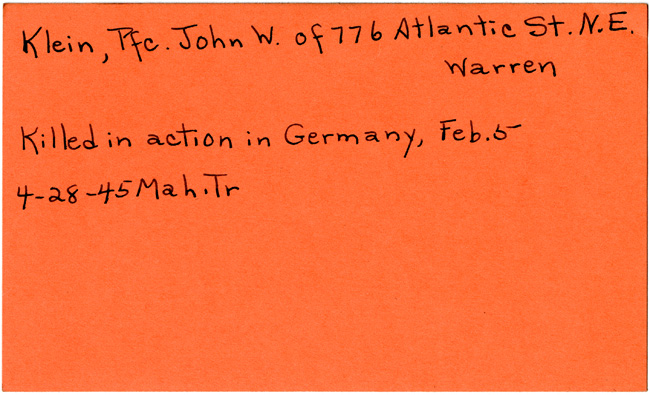 Klein, Pfc. John W. of 776 Atlantic St. N.E.
Warren
Killed in action in Germany, Feb. 5
4-28-45 Mah. Tr